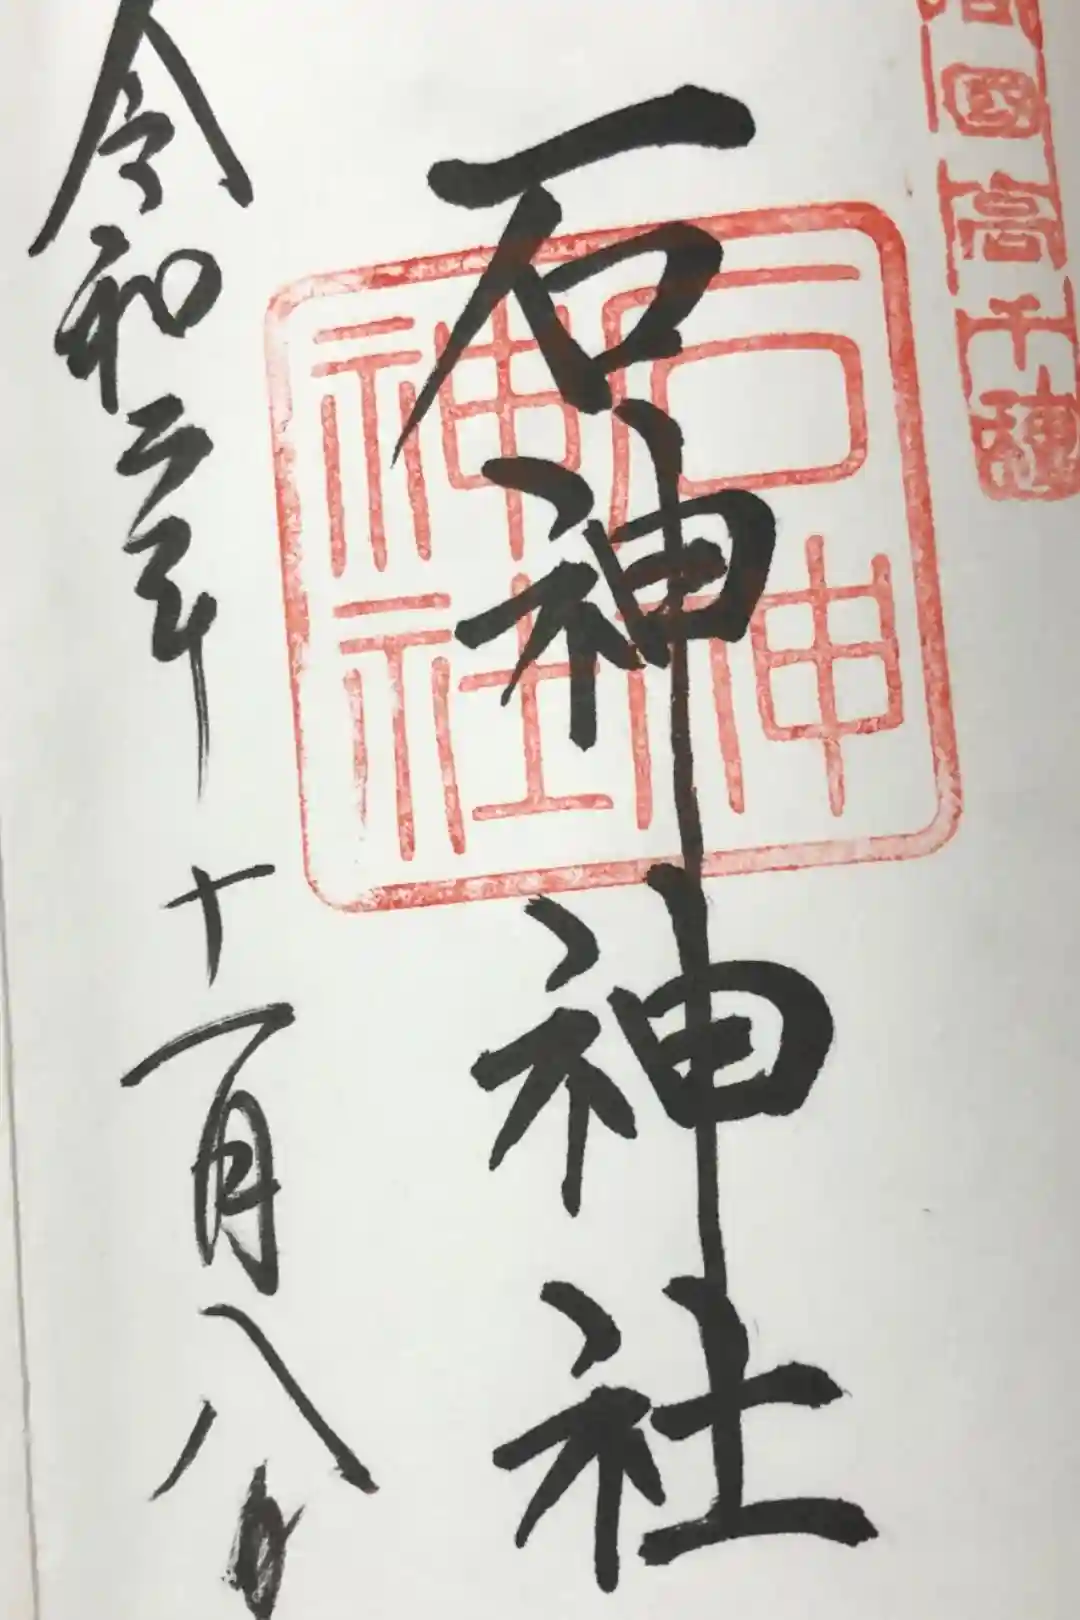 國高千穂
石神神社
石神
神社
令和二年十一月八日